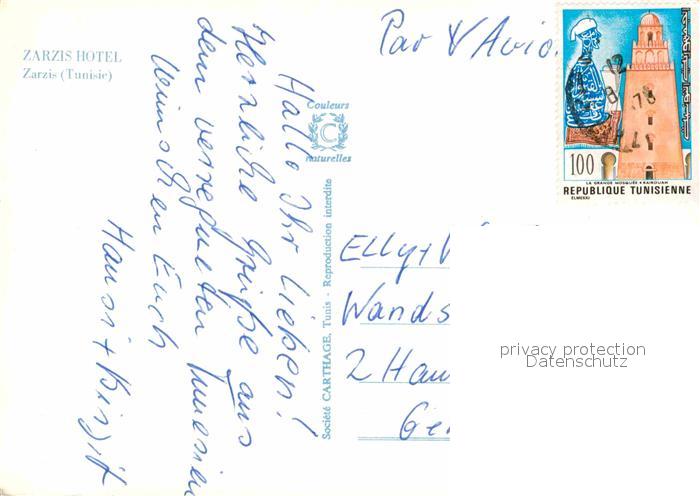 ZARZIS HOTEL
Zarzis (Tunisie)
Par Avion
Hallo Ihr Lieben!
Herzliche Grüße aus
dem verregneten Tunesien
wünschen Euch
Hansi + Birgit
Couleurs
C
naturelles
Société CARTHAGE, Tunis - Reproduction interdite
Elly +
Wands
2 Ham
Ger
100
12
8 78
LA GRANDE MOSQUÉE • KAIROUAN
REPUBLIQUE TUNISIENNE
ELMEKKI
privacy protection
Datenschutz